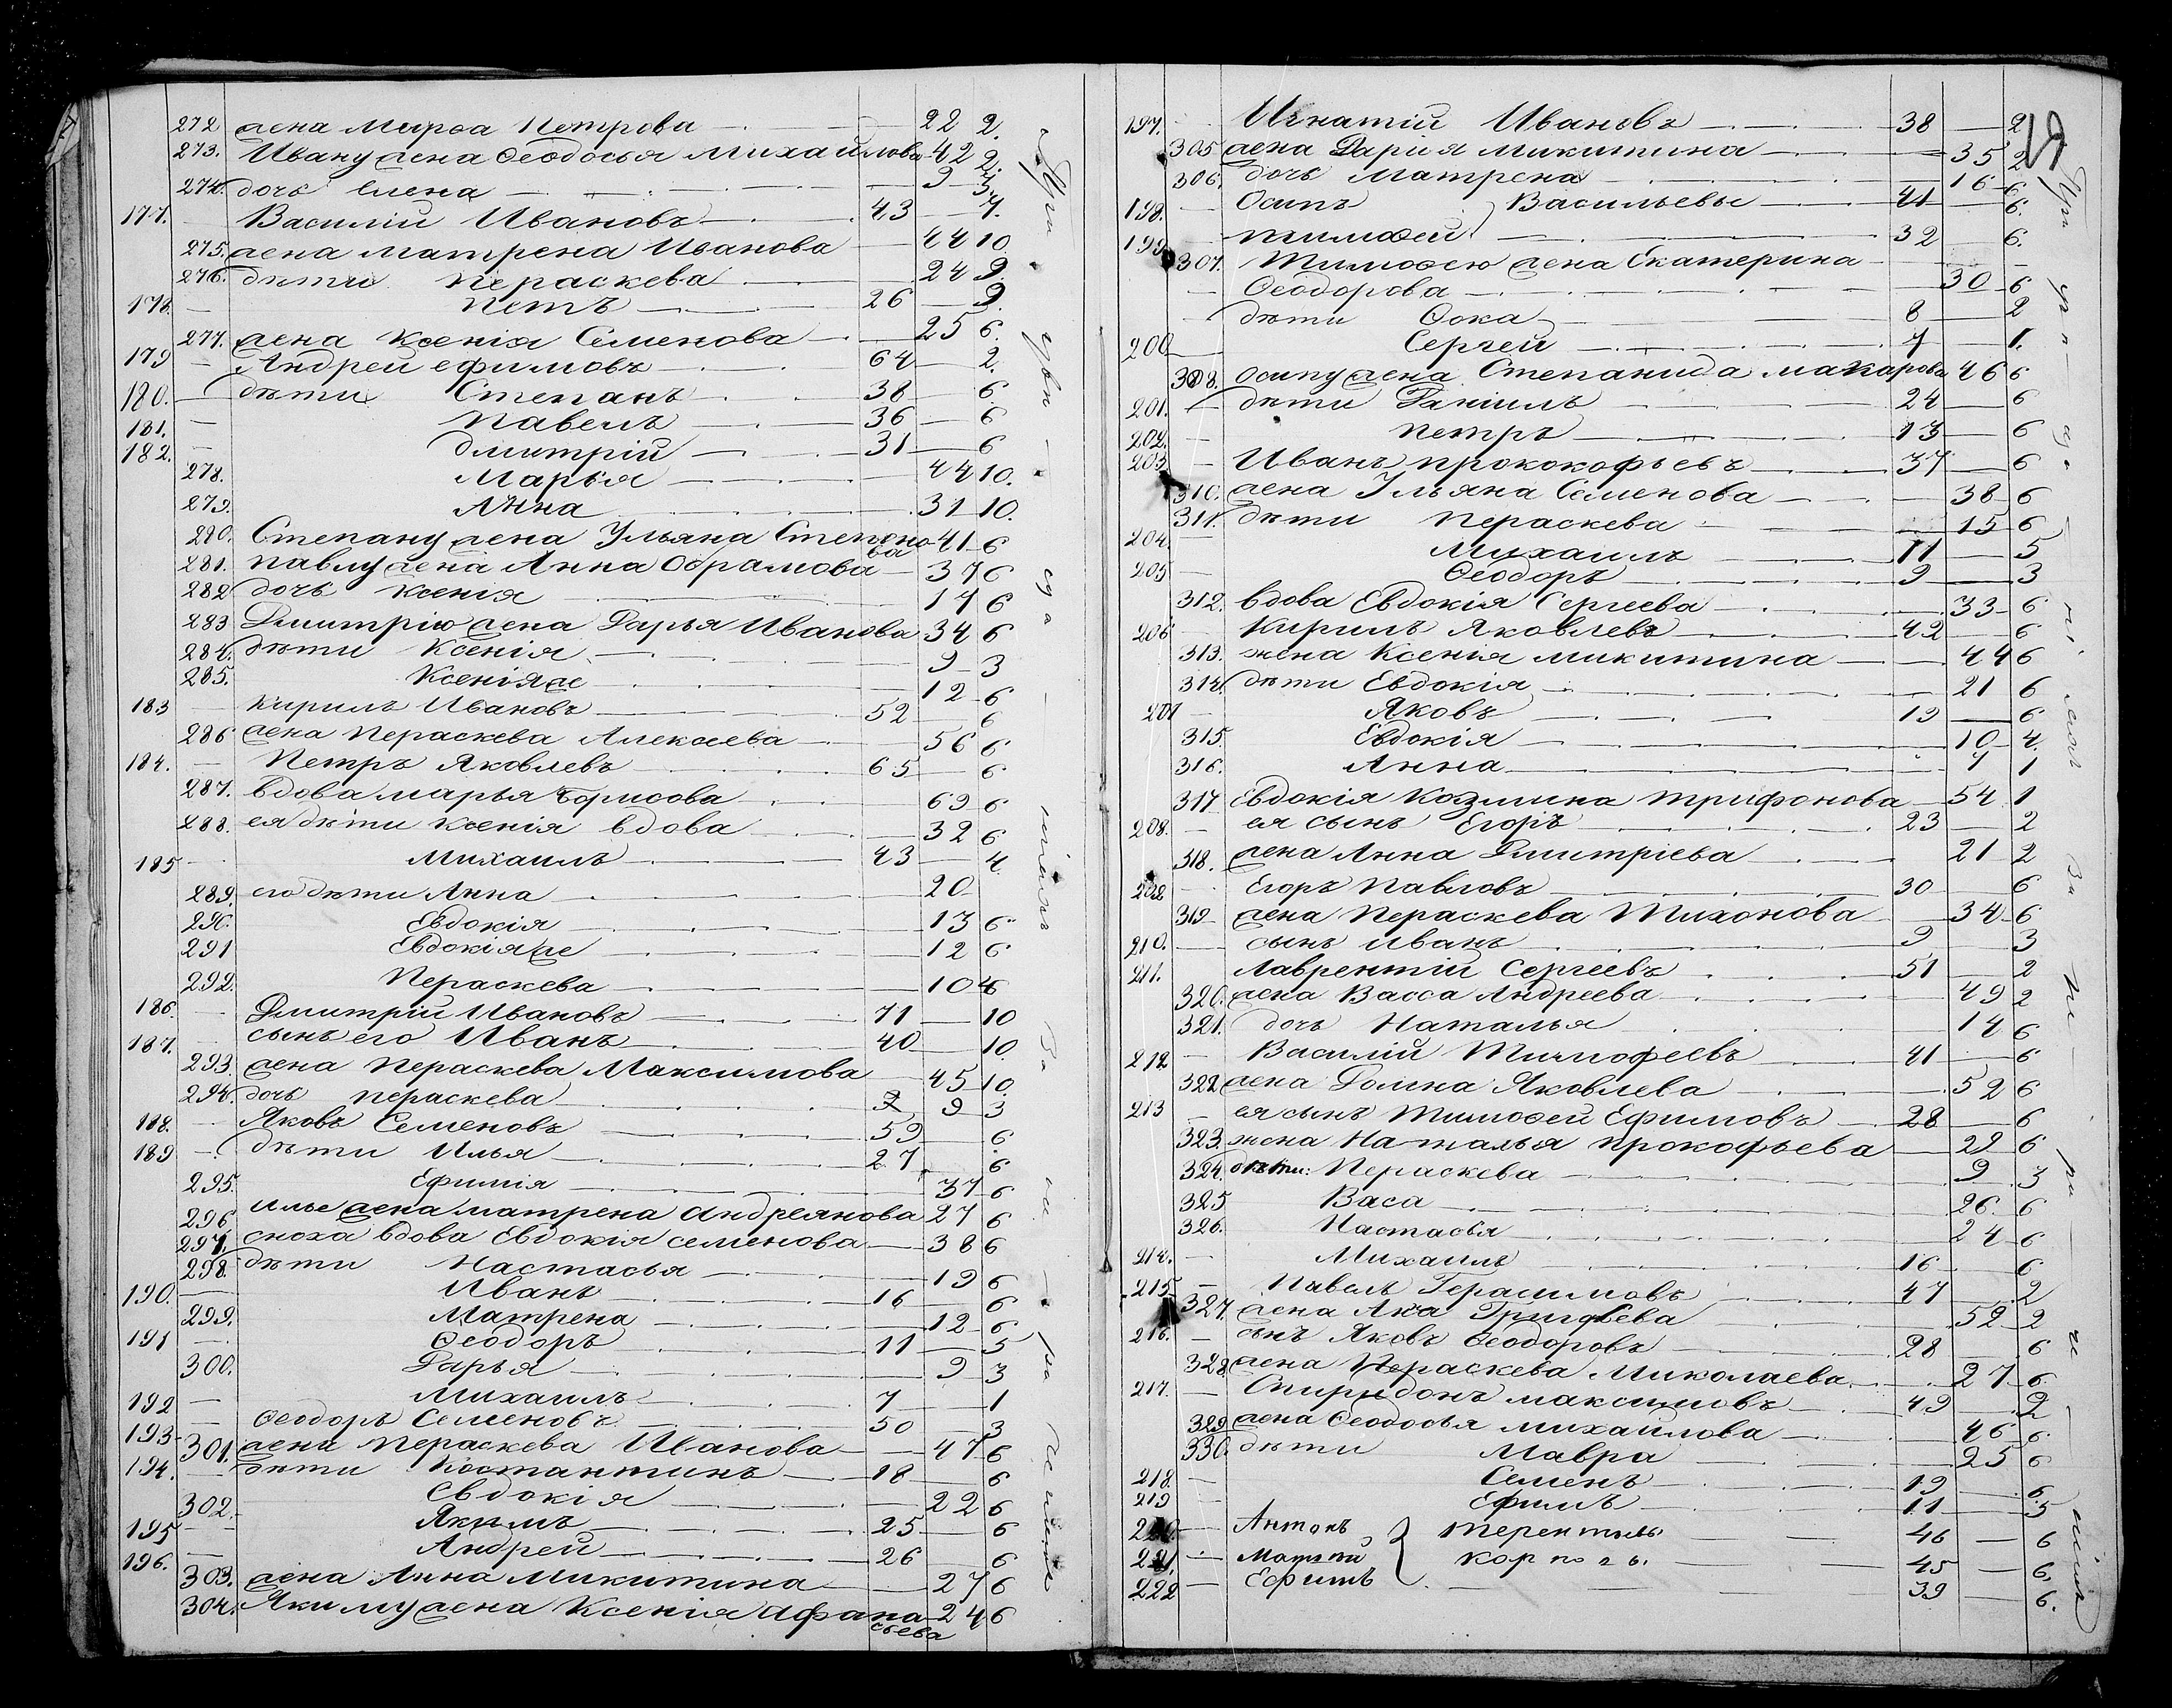 272 жена Марѳа Петрова 22 2.
273. Ивану жена Ѳеодосья Михайлова 42 2.
274. дочь Елена 9 3.
177. Василій Ивановъ 43 7.
275. жена Матрена Иванова 44 10
276. дѣти Пераскева 24 9.
178. Петъ 26 9.
277. жена Ксенія Семенова 25 6.
179 Андрей Ефимовъ 64 2.
180. дѣти Степанъ 38 6.
181. Павелъ 36 6
182. Дмитрій 31 6
278. Марья 44 10.
279. Анна 31 10.
280. Степану жена Ульяна Степено 41 6
ва
281. Павлу жена Анна Обрамова 37 6
282 дочь Ксенія 17 6
283 Дмитрію жена Дарья Иванова 34 6
284. дѣти Ксенія 9 3
285. Ксенія же 12 6
183 Кирилъ Ивановъ 52 6
286 жена Пераскева Алексеева 56 6
184. Петръ Яковлевъ 65 6
287. вдова Марья Борисова 69 6
288. ея дѣти Ксенія вдова 32 6
185 Михаилъ 43 4.
289. его дѣти Анна 20
290. Евдокія 13 6
291 Евдокія же 12 6
292. Пераскева 10 4
186. Дмитрій Ивановъ 71 10
187. сынъ его Иванъ 40 10
293. жена Пераскева Максимова 45 10
294. дочь Пераскева 9 3
188. Яковъ Семеновъ 59 6
189 дѣти Илья 27 6
295. Ефимія 37 6
296. Илье жена Матрена Андреянова 27 6
297. сноха вдова Евдокія Семенова 38 6
298. дѣти Настасья 19 6
190. Иванъ 16 6
299. Матрена 12 6
191 Ѳеодоръ 11 5
300. Дарья 9 3
192 Михаилъ 7 1
193 Ѳеодоръ Семеновъ 50 3
301. жена Пераскева Иванова 47 6
194. дѣти Костантинъ 18 6
302. Евдокія 22 6
195 Якимъ 25 6
196. Андрей 26 6
303. жена Анна Микитина 27 6
304. Якиму жена Ксенія Афана 24 6
сьева
197. Игнатій Ивановъ 38 2
305 жена Дарія Микитина 35 2
306. дочь Матрена 16 6
198. Осипъ } Васильевы 41 6.
199 Тимоѳей 32 6.
307. Тимоѳею жена Екатерина
Ѳеодорова 30 6
дѣти Ѳока 8 2
200 Сергей 7 1.
308. Осипу жена Степанида Макарова 46 6
201. дѣти Даніилъ 24 6
202. Петръ 13 6
203 Иванъ Прококофьевъ 37 6
310. жена Ульяна Семенова 38 6
311. дѣти Пераскева 15 6
204. Михаилъ 11 5
205 Ѳеодоръ 9 3
312. вдова Евдокія Сергеева 33 6
206 Кирилъ Яковлевъ 42 6
313. жена Ксенія Микитина 44 6
314. дѣти Евдокія 21 6
207 Яковъ 19 6
315. Евдокія 10 4.
316. Анна 7 1
317 Евдокія Козмина Трифонова 54 1
208. ея сынъ Егоръ 23 2
318. жена Анна Дмитріева 21 2
Егоръ Павловъ 30 6
319 жена Пераскева Тихонова 34 6
210. сынъ Иванъ 9 3
211. Лаврентій Сергеевъ 51 2
320. жена Васса Андреева 49 2
321. дочь Наталья 14 6
212 Василій Тимофеевъ 41 6
322 жена Домна Яковлева 52 6
213 ея сынъ Тимоѳей Ефимовъ 28 6
323. жена Наталья Прокофьева 29 6
324. дѣти: Пераскева 9 3
325 Васа 26. 6
326. Настасья 24 6
214. Михаилъ 16 6
215 Павелъ Герасимовъ 47 2
327. жена Ана Григоьева 52 2
216. сынъ Яковъ Ѳеодоровъ 28 6
328. жена Пераскева Миколаева 27 6
217. Спиридонъ Максимовъ 49 2
329 жена Ѳеодосья Михайлова 46 6.
330. дѣти Мавра 25 6
218. Семенъ 19 6.
219 Ефимъ 11 5
Антонъ } Терентьевы 46 6
221 Матвѣй 45 6.
222 Ефимъ 39 6.